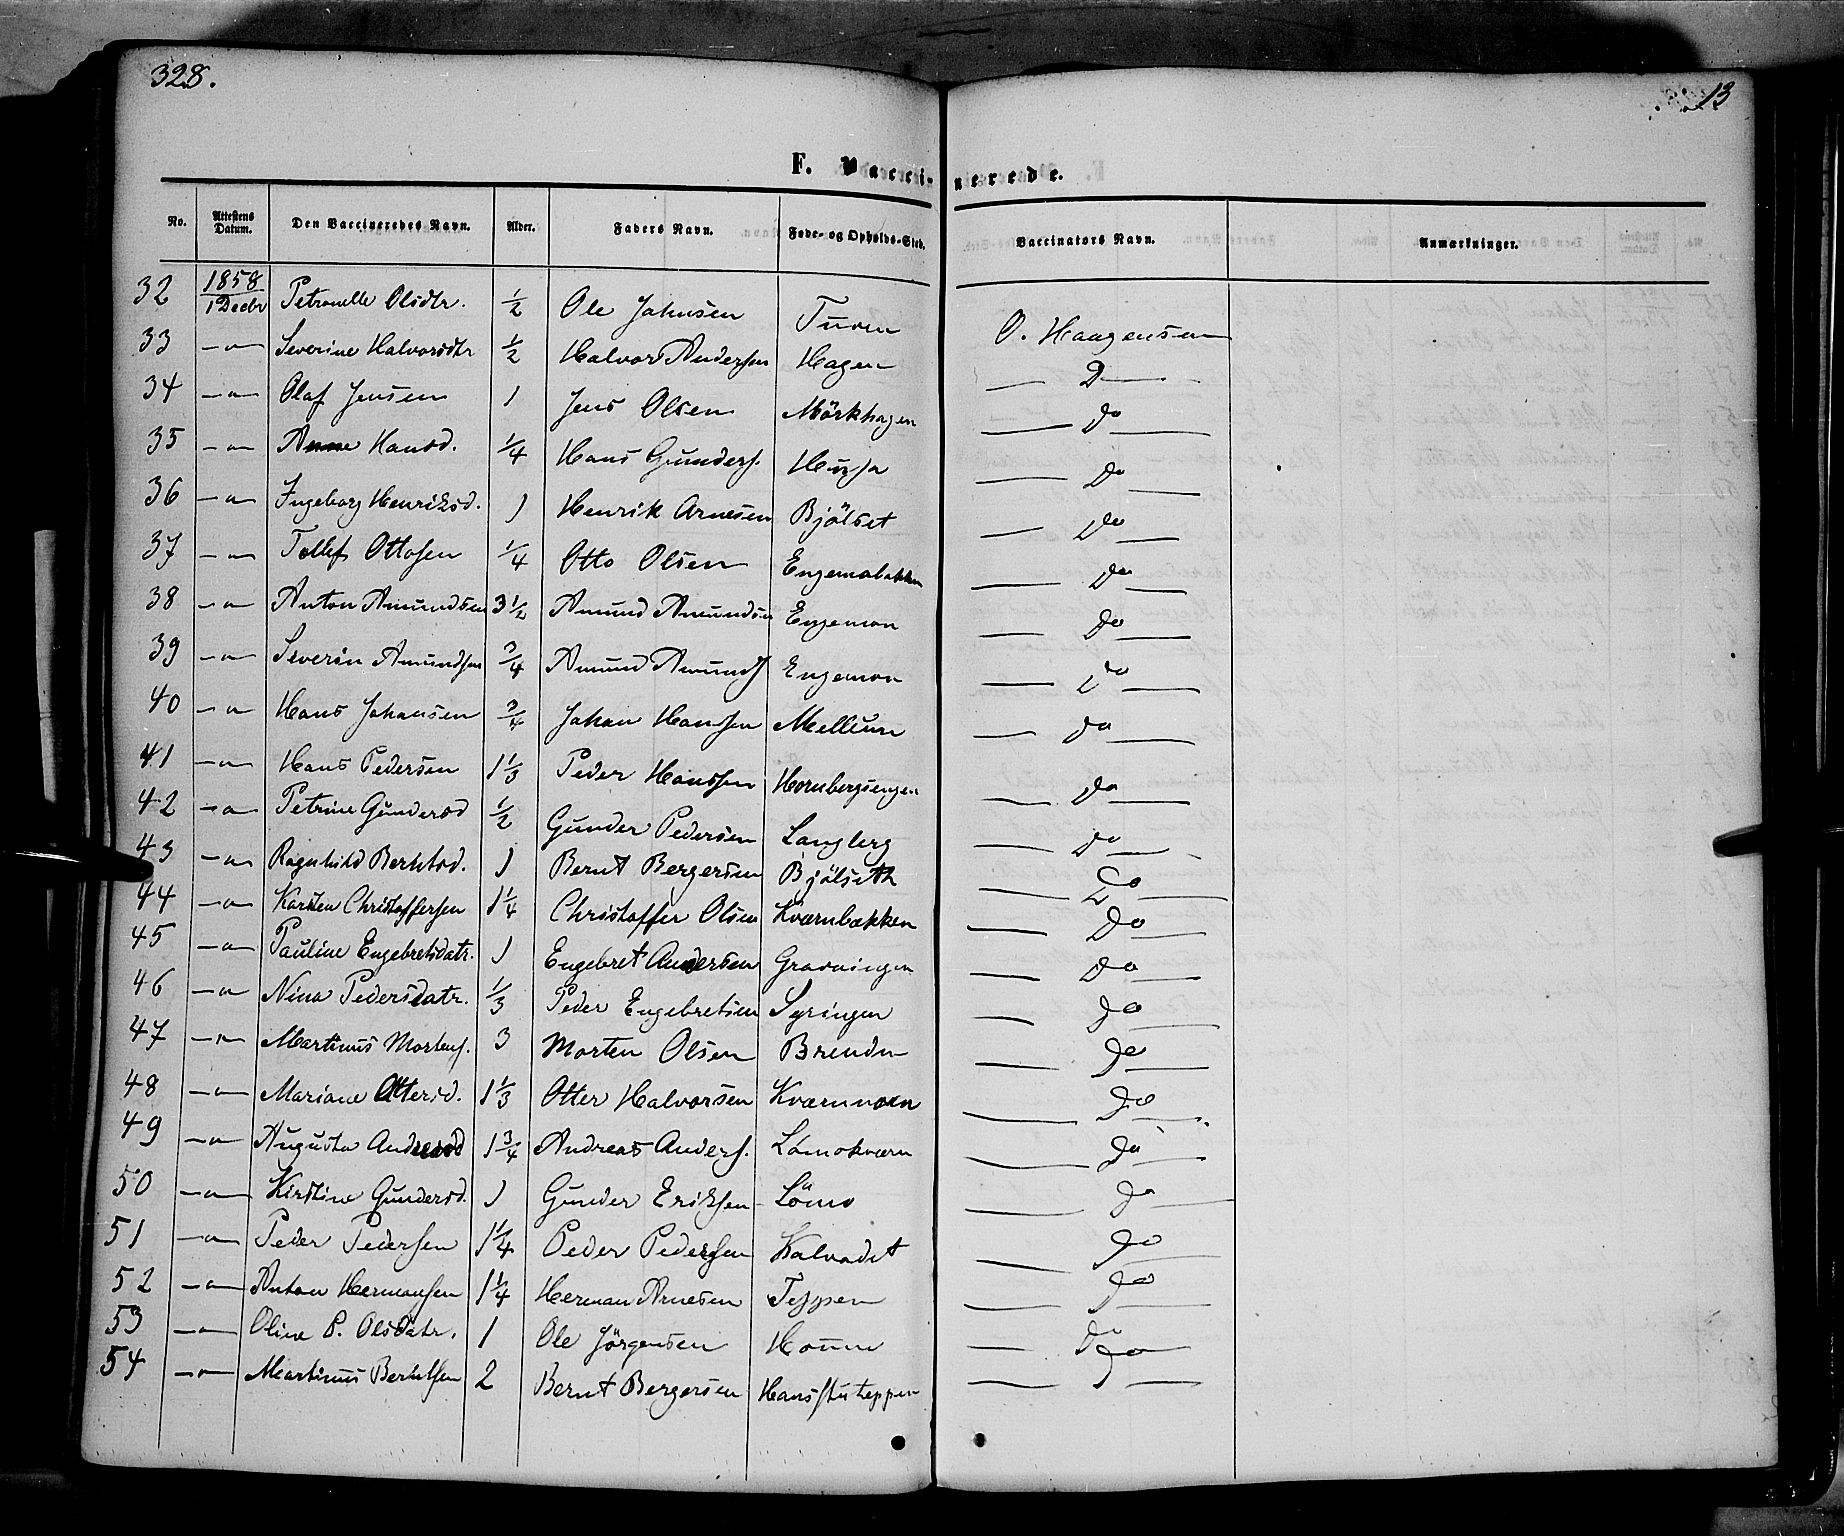 328.
13
F. Vaccinerede.
No. Attestens Datum. Den Vaccineredes Navn. Alder. Faders Navn. Føde- og Opholds-Sted. Vaccinators Navn. Anmærkninger.
32 1858 1 Decbr Petronelle Olsdtr. 1/2 Ole Johnsen Turen O. Haagensen
33 —"— Severine Halvorsdtr 1/2 Halvor Andersen Hagen — D —
34 —"— Olaf Jensen 1 Jens Olsen Mörkhagen — Do —
35 —"— Anne Hansd. 1/4 Hans Gunders. — Do —
36 —"— Ingeborg Henriksd. 1 Henrik Arnesen Bjölset — Do —
37 —"— Tollef Ottosen 1/4 Otto Olsen Engemobakken — Do —
38 —"— Anton Amundsen 3 1/2 Amund Amundsen Engemon — Do —
39 —"— Severin Amundsen 3/4 Amund Amunds Engemon — Do —
40 —"— Hans Johansen 3/4 Johan Hansen Mellum — Do —
41 —"— Hans Pedersen 1 1/3 Peder Hanssen Hornbergsengen — Do —
42 —"— Petrine Gundersd 1/2 Gunder Pedersen Langberg — Do —
43 —"— Ragnhild Berntsd. 1 Bernt Bergersen Bjölseth — Do —
44 —"— Karsten Christoffersen 1 1/4 Christoffer Olsen Kværnbækken — Do —
45 —"— Pauline Engebretsdatr. 1 Engebret Andersen Gravningen — Do —
46 —"— Nina Pedersdatr. 1/3 Peder Engebretsen Syringen — Do —
47 —"— Martinus Mortens. 3 Morten Olsen Brenden — Do —
48 —"— Mariane Ottersd. 1 1/3 Otter Halvorsen Kværnmoen — Do —
49 —"— Augusta Andreasd 1 3/4 Andreas Anders. Lömokværn — Do —
50 —"— Kirstine Gundersd. 1 Gunder Eriksen Lömo — Do —
51 —"— Peder Pedersen 1 1/4 Peder Pedersen Kalvodet — Do —
52 —"— Anton Hermansen 1 1/4 Herman Arnesen Teppen — Do —
53 —"— Oline P. Olsdatr. 1 Ole Jörgensen — Do —
54 —"— Martinus Berntsen 2 Bernt Bergersen Hansstuteppen — Do —